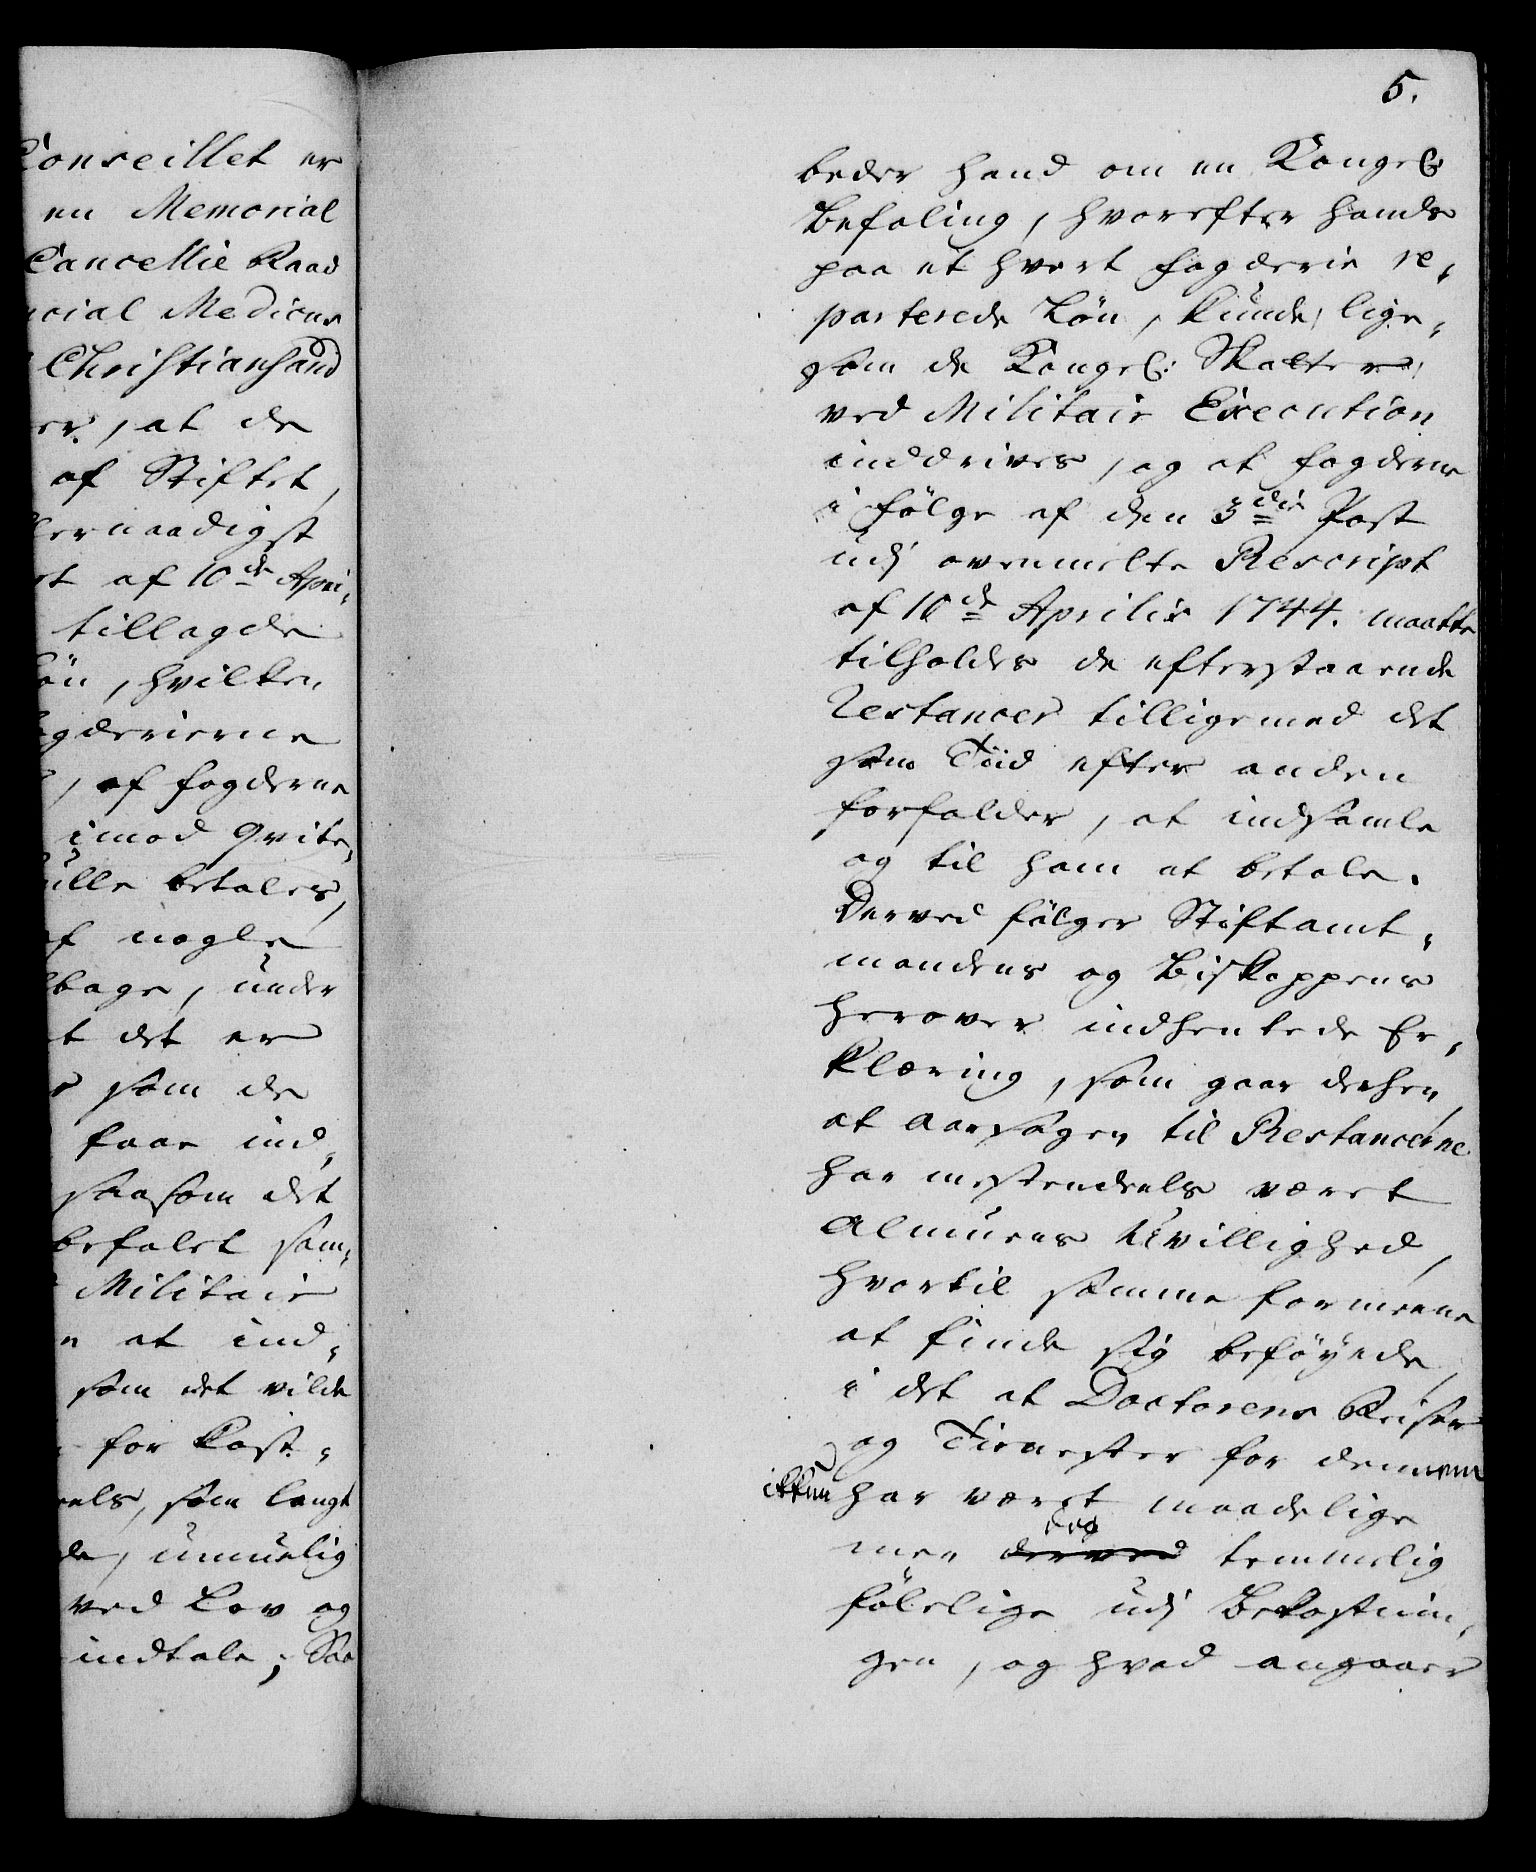 Conseillet er
en Memorial
Cancellie Raad
ncial Medicus
Christiansand
er, at de
af Stiftet,
lernaadigst
rt af 10de Apri-
tillagde
øn, hvilken
gderierne
, af fogderne
imod Qvite-
ulle betales,
f nogle
bage, under
t det er
som de
faae ind-
saasom det
befalet sam-
Militair
n at ind-
som det vilde
for Kost-
els, som langt
de, umuelig
ved Lov og
indtale; Saa
5.
beder hand om en Kongel:
Befaling, hvorefter hands
paa et hvert fogderie re-
parterede Løn, kunde, lige-
som de Kongel: Skatter,
ved Militair Execution
inddrives, og at fogderne
i følge af den 3die Post
udj ovenmelte Rescript
af 10de Aprilis 1744. maatte
tilholdes de efterstaaende
Restancer tilligemed det
som Tiid efter anden
forfalder, at indsamle
og til ham at betale.
Derved følger Stiftamt-
mandens og Biskoppens
herover indhentede Er-
klæring, som gaar derhen,
at Aarsagen til Restancerne
har mestendeels været
Almuens Uvillighed,
hvortil samme formeene
at finde sig beføyede,
i det at Doctorens Reiser
og Tienester for dennem
ikkun har været maadelige
men derved dog temmelig
følelige udj Bekostnin-
gen, og hvad angaaer